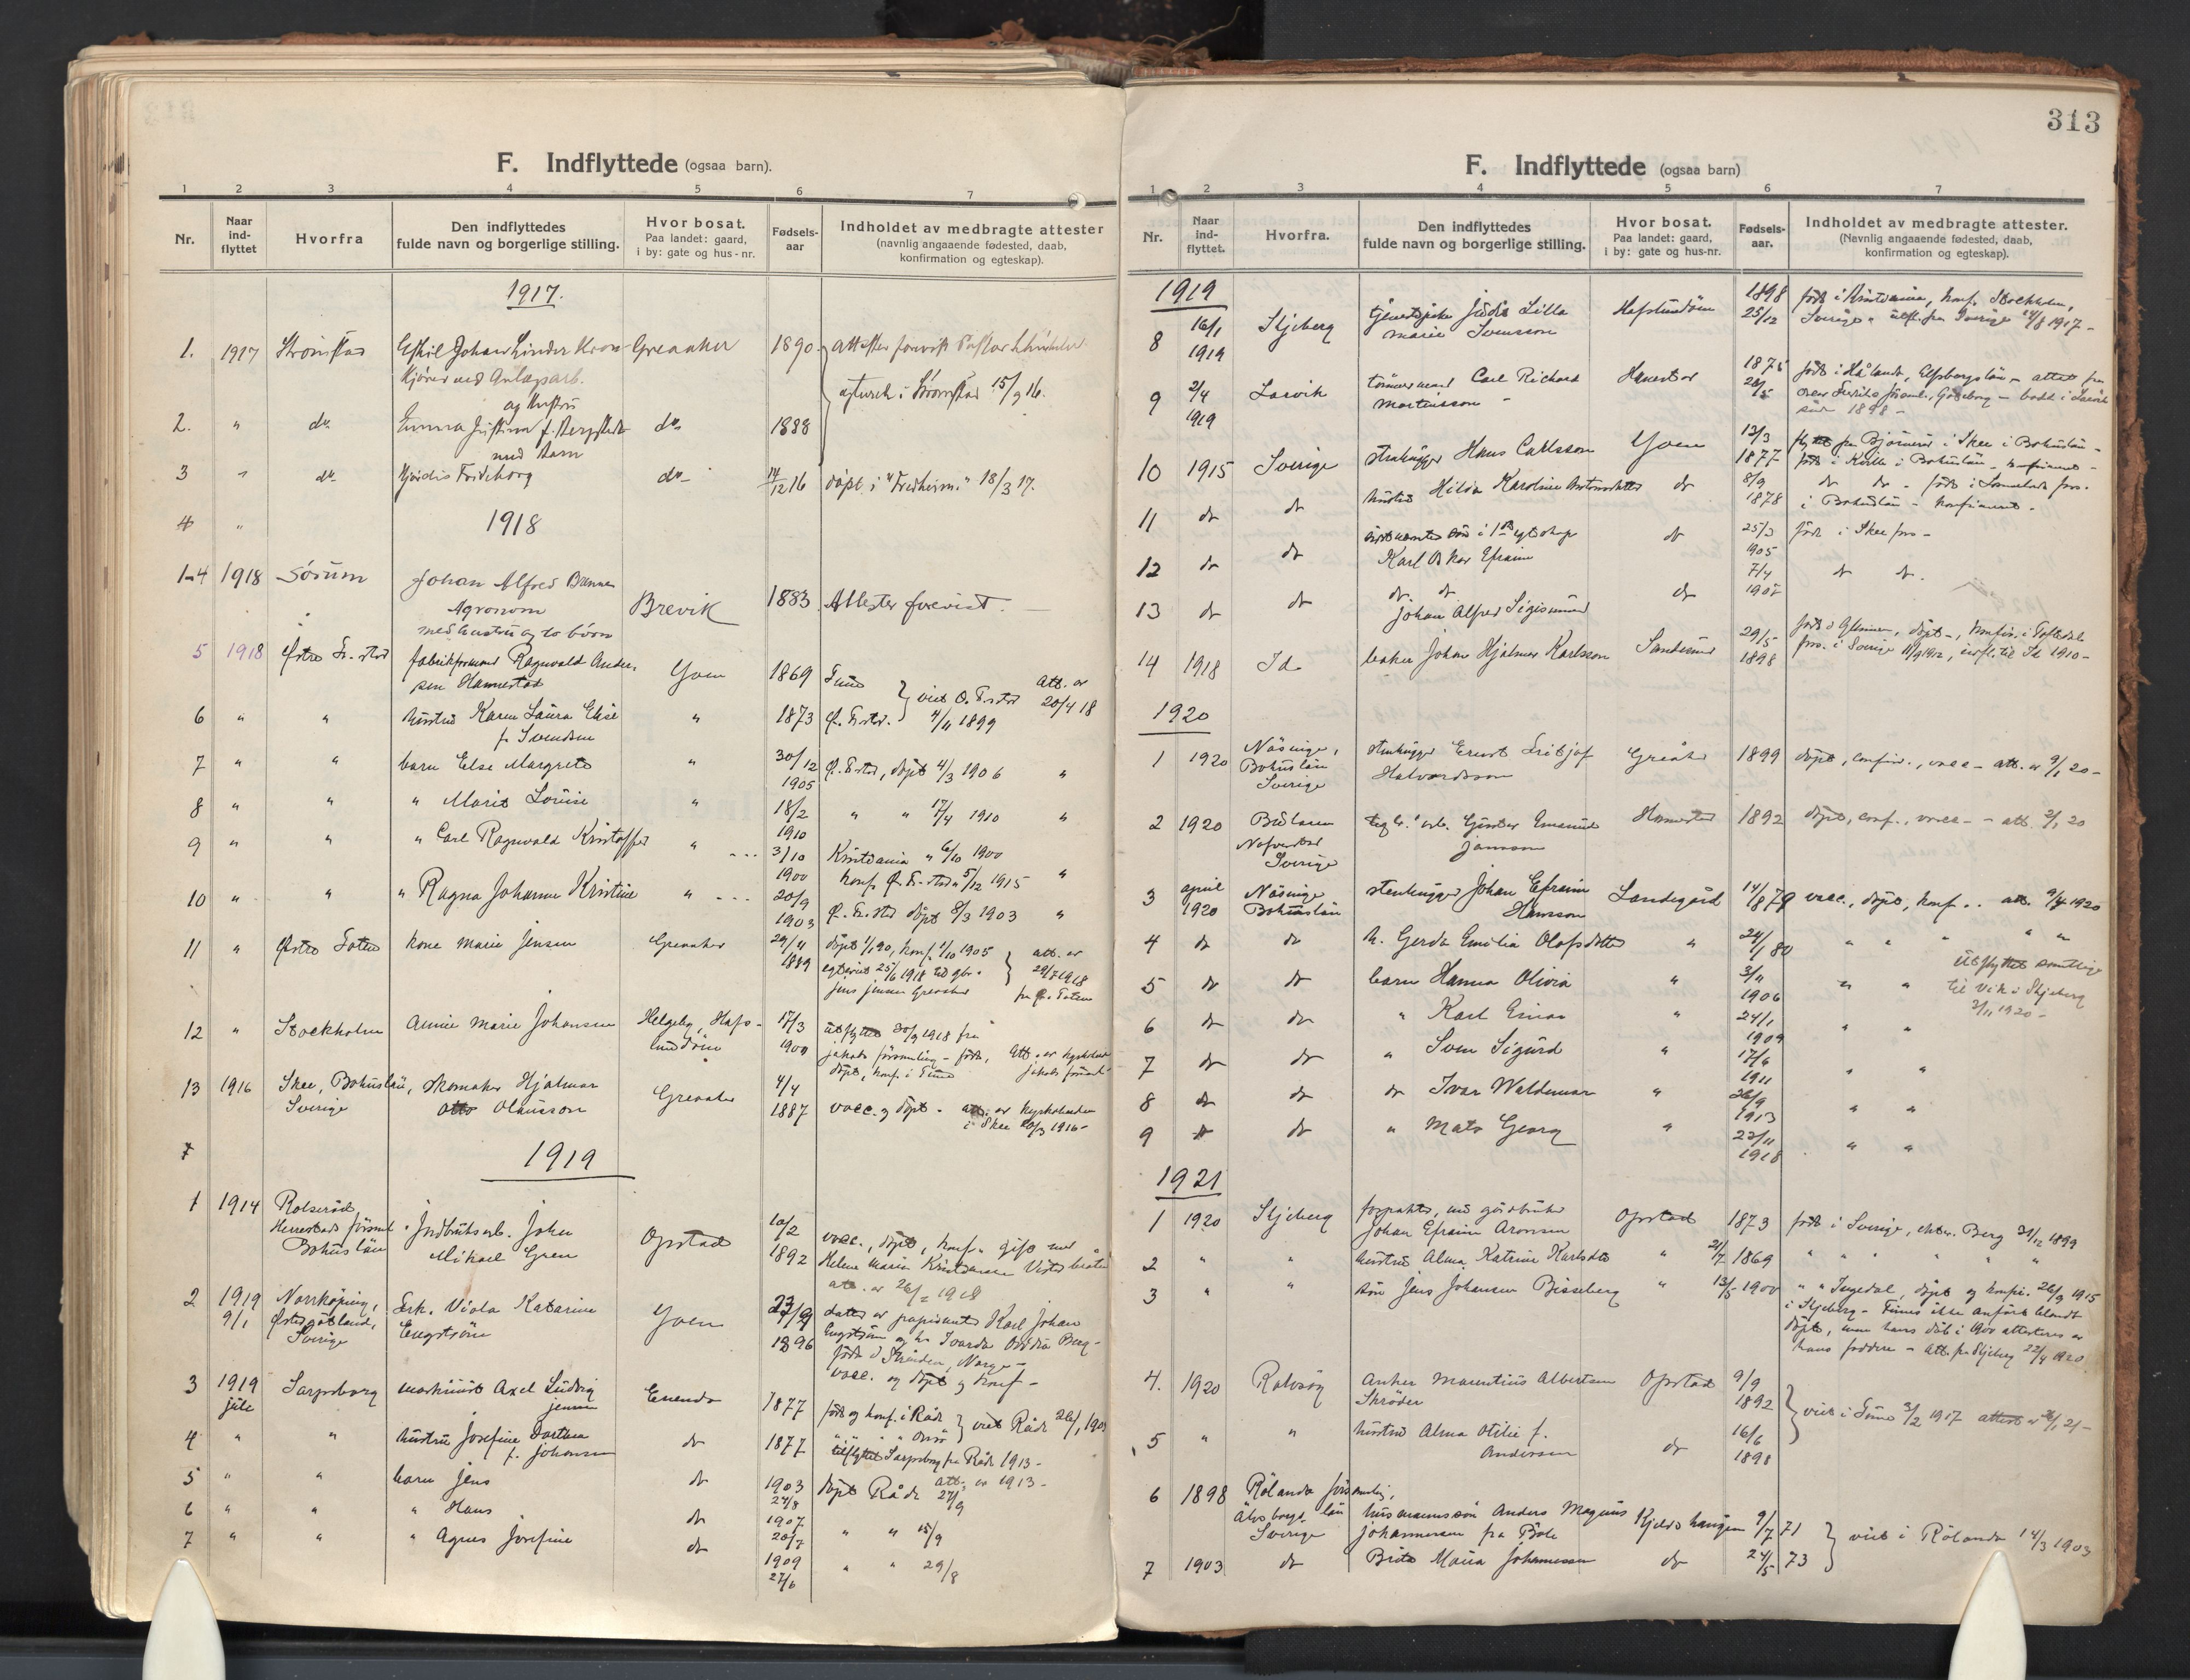 F. Indflyttede (ogsaa barn).
1 2 3 4 5 6 7
Nr.
Naar ind- flyttet
Hvorfra
Den indflyttedes fulde navn og borgerlige stilling.
Hvor bosat. Paa landet: gaard, i by: gate og hus-nr.
Fødsels- aar
Indholdet av medbragte attester (navnlig angaaende fødested, daab, konfirmation og egteskap).
1917.
1. 1917 Strømstad Johan Greaaker 1890
og hustru
egteviet i Strømstad 15/9 16.
2. " do. Emma do. 1888
med barn
3 " do. do. 14/12 16 døpt i "Fredheim." 18/3 17.
4 "
1918
1-4 1918 Sørum Johan Alfred
Agronom Brevik 1883 Attester forevist.
med hustru og to børn
5 1918 Østre Fr.stad fabrikformand Ragnvald Ander-
sen Hannestad Yven 1869 Tune
viet Ø. Fr.stad 4/11 1899 Att. av 20/4 18
6 " " hustru Karen Laura Elise
f. Svendsen " 1873 Ø. Fr.sted.
7 " " barn Else Margrete " 30/12 1905 Ø. Fr.sted, døpt 4/3 1906 "
8 " " " Marie Louise " 18/2 1910 " " 17/4 1910 "
9 " " " Carl Ragnvald Kristoffer " 3/10 1900 Kristiania " 6/10 1900
konf. Ø. Fr.stad 5/12 1915 "
10 " " " Ragna Johanne Kristine " 20/9 1903 Ø. Fr.sted døpt 8/3 1903 "
11 " Østre Toten kone Marie Jensen Greaaker 29/11 1889 konf. 1/10 1905
egteviet 25/6 1918 til
Jens Jensen Greaaker
att. av 29/7 1918 fra Ø. Toten
12 " Stockholm Annie Marie Johansen Helgeby, Hafs-
lundsøen 17/3 1900 utflyttet 30/9 1918 fra
Jakobs församling - født,
døpt, konf. i Tune
13 1916 Skee, Bohuslän, Sverige skomaker Hjalmar
Otto Olausson Greaaker 4/4 1887 vacc. og døpt.
i Skee 20/3 1916-
1919
1 1914
Herrestads församl.
Bohuslän Jordbruksarb. John
Mikael Gren Opstad 10/2 1892 vacc., døpt, konf. gift med
Helene Marie Kristiansen
att. av 26/2 1918
2 1919 9/1 Norrköping,
Østergötland,
Sverige Frk. Viola Katarine
Engström Yven 23/9 1896 datter av Karl Johan
Engström
født i Skien, Norge -
vacc. og døpt og konf -
3 1919 juli Sarpsborg maskinist Axel Ludvig
Jensen Enendo 1877 født og konf. i Råde
viet Råde 26/1 1903
4 " " hustru Josefine Dorthea
f. Johansen do 1877
tilflyttet Sarpsborg fra Råde 1913 -
5 " " barn Jens do 1903 24/8 døpt Råde 27/9
att. av 1913 -
6 " " " Hans do 1907 20/7 " " 15/9
7 " " " Agnes Josefine do 1909 27/6 " " 29/8
313
F. Indflyttede (ogsaa barn)
1 2 3 4 5 6 7
Nr.
Naar ind- flyttet.
Hvorfra.
Den indflyttedes fulde navn og borgerlige stilling.
Hvor bosat. Paa landet: gaard, i by: gate og hus-nr.
Fødsels- aar.
Indholdet av medbragte attester. (Navnlig angaaende fødested, daab, konfirmation og egteskap).
1919
8 16/1 1919 Skjeberg tjenestepike Judit Lilla
Marie Svensson Hafslundsøen 1898 25/12 født i Kristiania, konf. Stockholm,
Sverige. utfl. fra Sverige 14/8 1917 -
9 2/4 1919 Larvik tømmermand Carl Richard
Martinsson - Hannestad 1875 28/5 født i Håland, Elfsborgslän - attest fra
Göteborg - bodd i Larvik
siden 1898 -
10 1915 Sverige stenhugger Hans Carlsson Yven 13/3 1877 flyttet fra i Skee i Bohuslän -
født i i Bohuslän - konfirmeret -
11 do do hustru Hilda Karoline do 8/9 1878 do do - født i
i Bohuslän - konfirmeret -
12 do do søn i 1ste egteskap
Karl Oskar Efraim do 25/3 1905 født i Skee prs -
13 do do do. do.
Johan Alfred Sigismund do 7/4 1907 do do.
14 1918 Id baker Johan Hjalmar Karlsson Sandesund 29/5 1898 døpt -, konfir. i
prs. i Sverige 11/9 1912, indfl. til Id 1910 -
1920
1 1920 Näsinge,
Bohuslän
Sverige stenhugger Ernst Fritjof
Halvardsson Greåker 1899 døpt, confir., vacc - att. av 9/1 20 -
2 1920
Sverige Gustav Emanuel
Jansson Hannestad 1892 døpt, conf., vacc - - att. 2/1 20
3 april 1920 Näsinge
Bohuslän stenhugger Johan Efraim
Hansson Sandegård 14/8 79 vacc., døpt, konf.. att. 9/4 1920
4 do do h. Gerda Emilia Olofsdotter " 24/1 80 " " " " "
Utflyttet samtlige
til Vik i Skjeberg
3/11 1920 -
5 do do barn Hanna Olivia " 3/11 1906 " "
6 do do " Karl Einar " 24/1 1909 " "
7 do do " Sven Sigurd " 17/6 1911 " "
8 do do do Ivar Waldemar " 26/9 1913 " "
9 do do " Mats Georg " 23/11 1918 " "
1921
1 1920 Skjeberg forpakter, av gårdbruker
Johan Efraim Aronsen Opstad 1873 født i Sverige, ektev. Berg 31/12 1899
2 " " hustru Alma Katrine Karlsdtr " 21/7 1869 " " " " "
3 " " søn Jens Johansen Bisseberg " 13/5 1900 " " Ingedal, døpt og konfi. 26/9 1915
i Skjeberg - Finnes ikke anført blandt
døpte, men hans dåb i 1900 attesteres av
hans faddere - att. fra Skjeberg 22/4 1920
4. 1920 Rolvsøy Anker Mauritius Albertsen
Skrøder Opstad 9/9 1892
viet i Tune 3/2 1917 attest av 26/1 21 -
5 " " hustru Alma Otilie f.
Andersen do 16/6 1898
6 1898 Rölanda församling,
Älvsborgs län
Sverige husmannssøn Anders Magnus
Johannessen fra Kjeldshaugen 9/7 71
viet i Rölanda 14/3 1903
7 1903 do Brita Maria Johannesson do 24/5 73